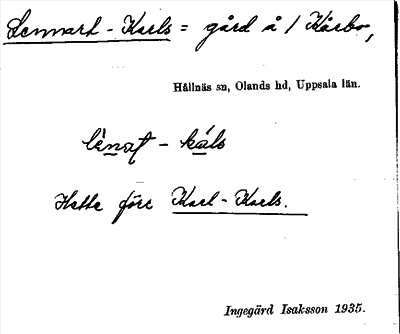 Lennart-Karls = gård å / Kårbo,
Hållnäs sn, Olands hd, Uppsala län.
lènaṭ - káls
Hette förr Karl-Karls.
Ingegärd Isaksson 1935.